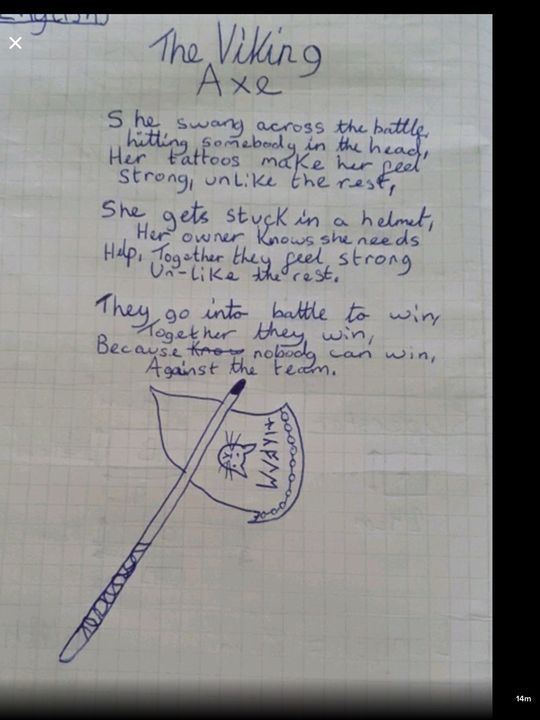 English
The Viking
Axe
She swang across the battle,
hitting somebody in the head,
Her tattoos make her feel
strong, unlike the rest,
She gets stuck in a helmet,
Her owner knows she needs
Help, Together they feel strong
Un-like the rest.
They go into battle to win,
Together they win,
Because know nobody can win,
Against the team.
14m